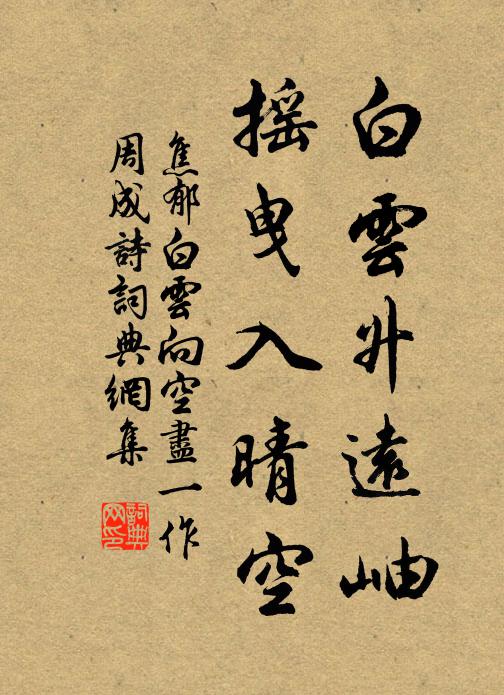 白雲升遠岫
搖曳入晴空
焦郁白雲向空盡一作
周成詩詞典網集
詞典網印